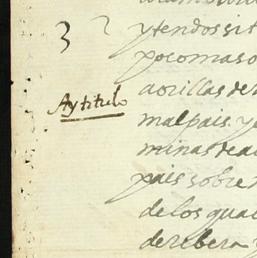 3
y tendossist
poco mas o
Ay titulo
a orillas de
mal pais y
minas de a
pais sobre
de los qua
de rebera y